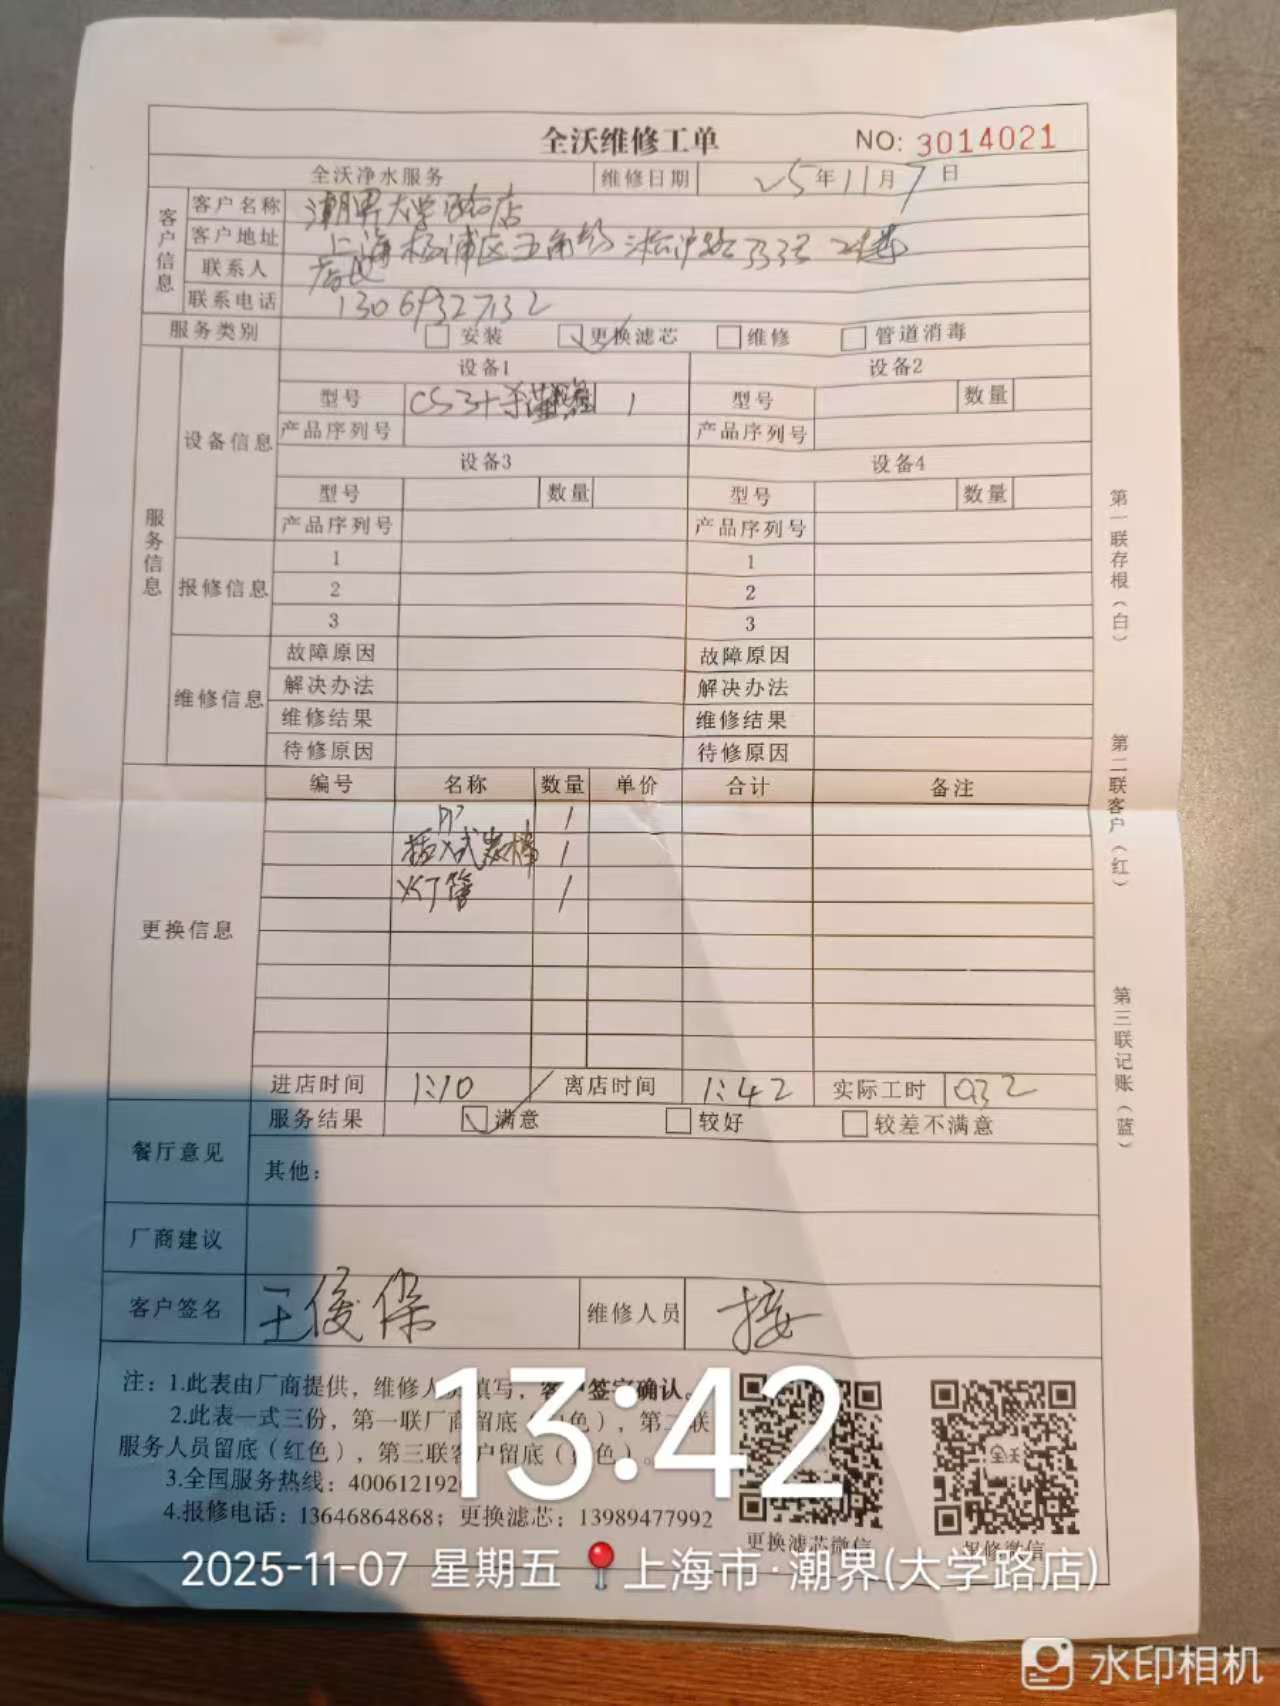 全沃维修工单 NO: 3014021
全沃净水服务 维修日期 25年11月7日
客户信息
客户名称 潮界大学路店
客户地址 上海杨浦区五角场淞沪路333号2楼
联系人 店长
联系电话 13069327132
服务类别 安装 更换滤芯 维修 管道消毒
服务信息
设备信息
设备1 设备2
型号 CS3+杀菌 1 型号 数量
产品序列号 产品序列号
设备3 设备4
型号 数量 型号 数量
产品序列号 产品序列号
报修信息
1 1
2 2
3 3
维修信息
故障原因 故障原因
解决办法 解决办法
维修结果 维修结果
待修原因 待修原因
更换信息
编号 名称 数量 单价 合计 备注
1
插入式 1
灯管 1
进店时间 1:10 离店时间 1:42 实际工时 032
餐厅意见
服务结果 满意 较好 较差不满意
其他:
厂商建议
客户签名 王俊保 维修人员 接
注: 1.此表由厂商提供, 维修人员填写, 客户签字确认。
2.此表一式三份, 第一联厂商留底(白色), 第二联
服务人员留底(红色), 第三联客户留底( 色)。
3.全国服务热线: 400612192
4.报修电话: 13646864868; 更换滤芯: 13989477992
更换滤芯微信 报修微信
全沃
第一联存根(白)
第二联客户(红)
第三联记账(蓝)
13:42
2025-11-07 星期五 上海市·潮界(大学路店)
水印相机